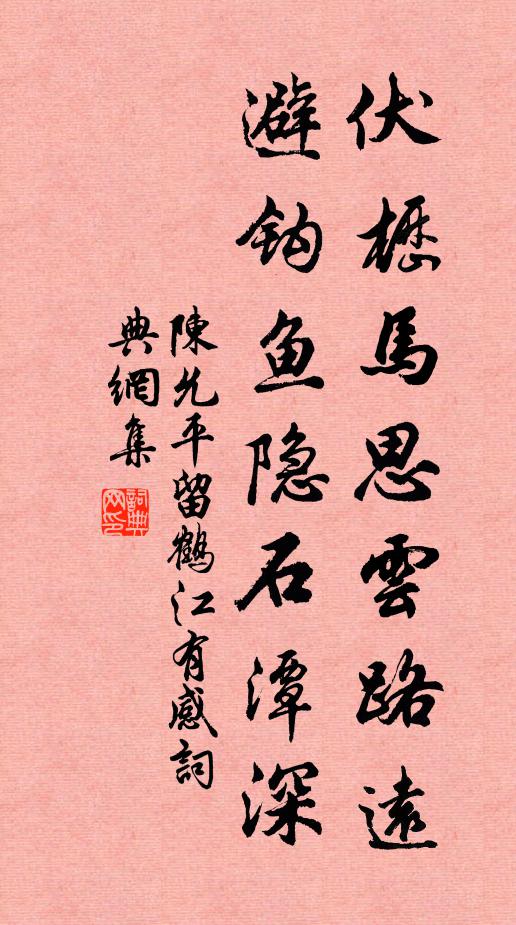 伏櫪馬思雲路遠
避鈎魚隐石潭深
陳允平留鶴江有感詞
典網集
詞典网印